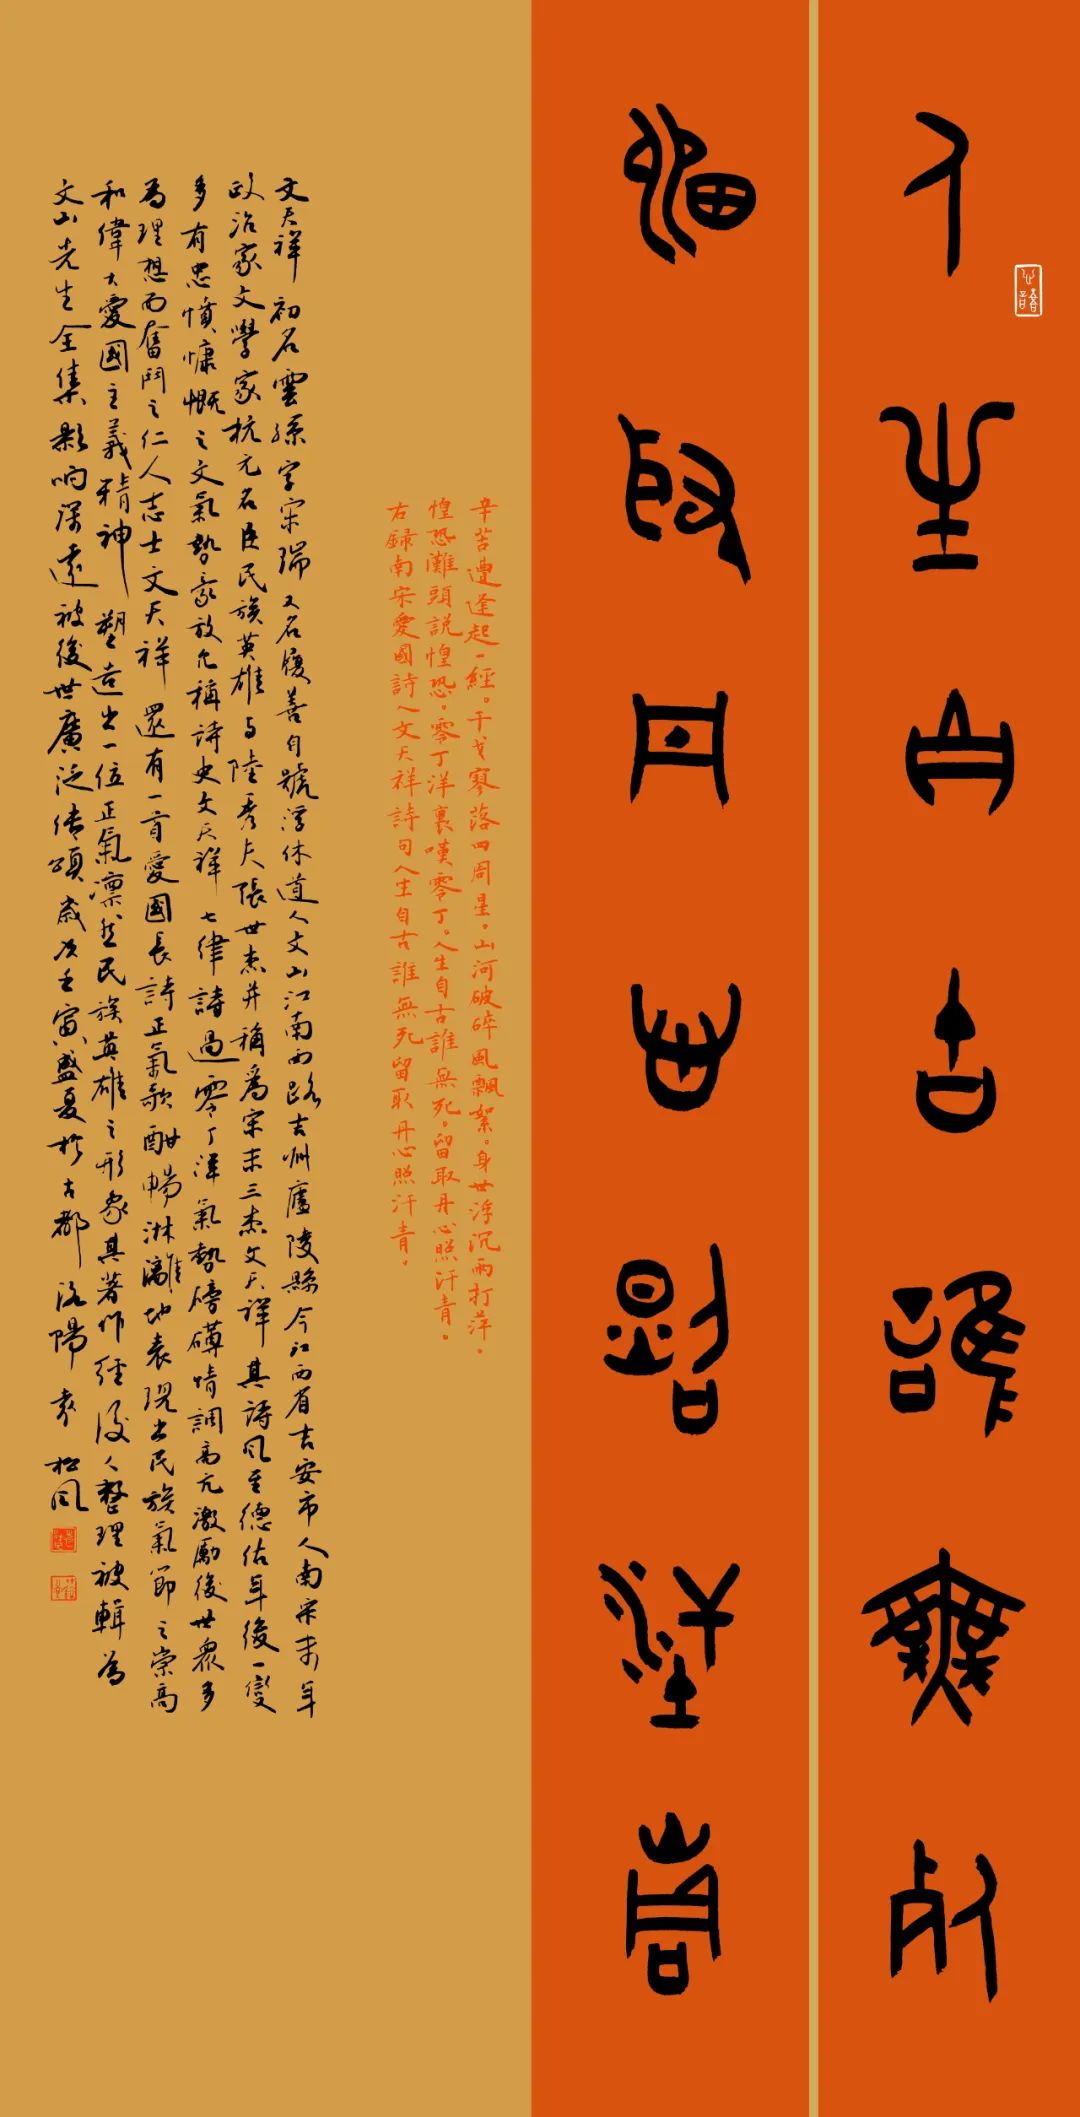 人生自古誰無死
留取丹心照汗青
辛苦遭逢起一經。干戈寥落四周星。山河破碎風飄絮。身世浮沉雨打萍。
惶恐灘頭說惶恐。零丁洋裏嘆零丁。人生自古誰無死。留取丹心照汗青。
右録南宋愛國詩人文天祥詩句人生自古誰無死留取丹心照汗青。
文天祥初名雲孫字宋瑞又名履善自號浮休道人文山江南西路吉州廬陵縣今江西省吉安市人南宋末年
政治家文學家抗元名臣民族英雄与陸秀夫張世杰并稱爲宋末三杰文天祥其詩风至德佑年後一變
多有忠憤慷慨之文氣勢豪放允稱詩史文天祥七律詩過零丁洋氣勢磅礴情調高亢激勵後世眾多
為理想而奮鬥之仁人志士文天祥還有一首愛國長詩正氣歌酣暢淋漓地表現出民族氣節之崇高
和偉大愛國主義精神塑造出一位正氣凛然民族英雄之形象其著作經後人整理被輯為
文山先生全集影响深遠被後世廣泛传頌歲次壬寅盛夏於古都洛陽袁松风